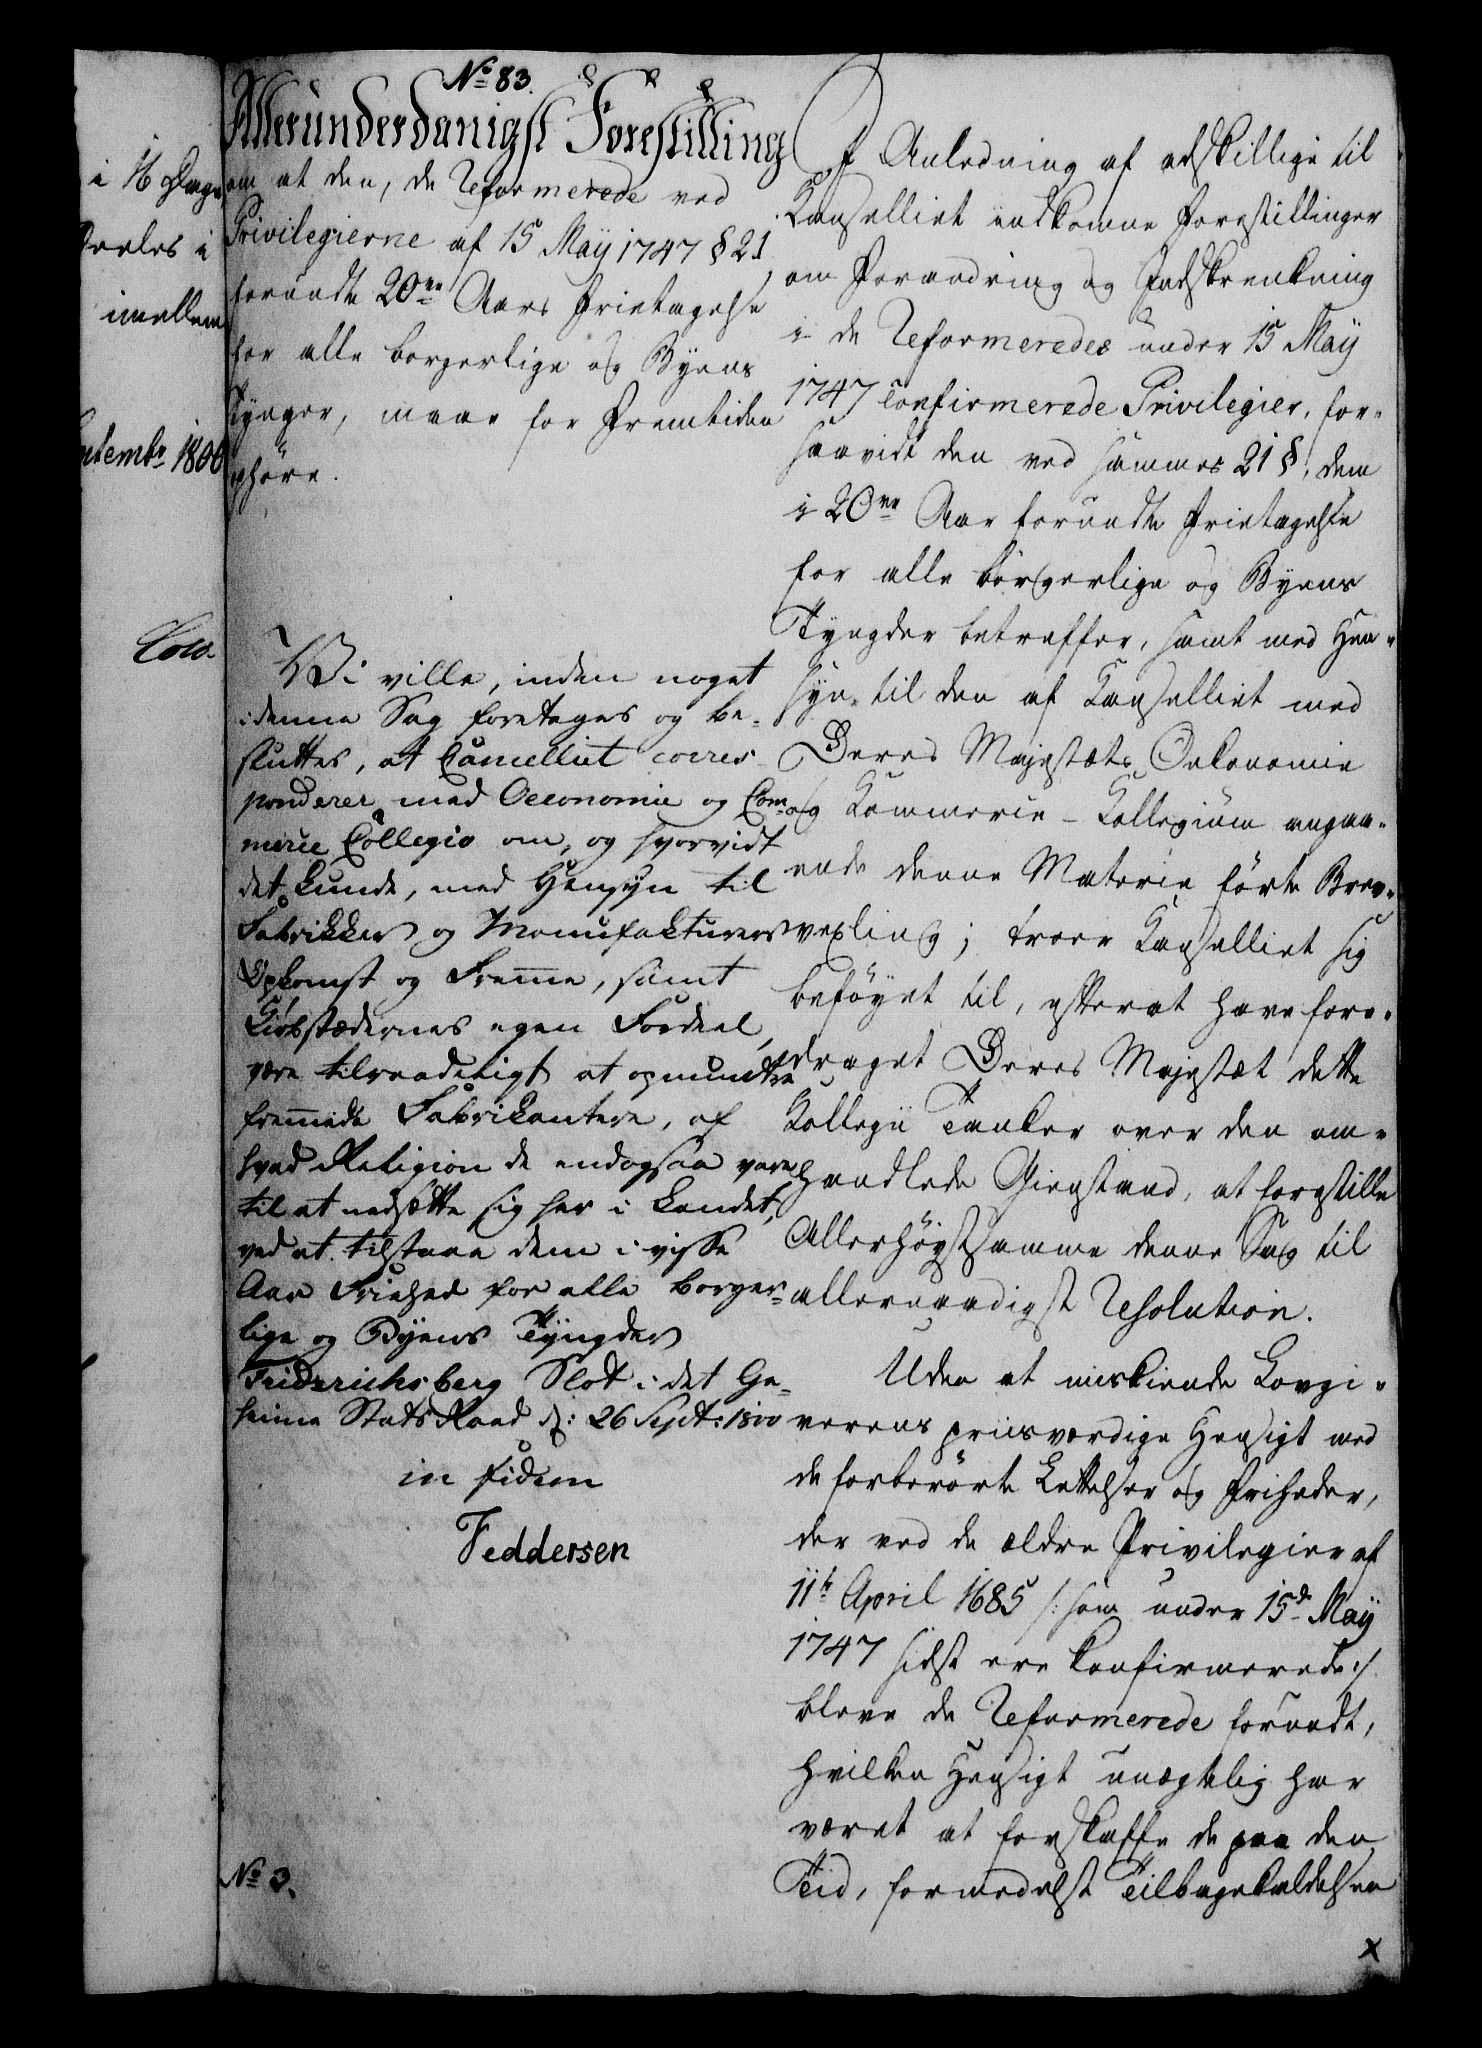 No 83.
Allerunderdanigst Forestilling
om at den, de Reformerede ved
Privilegierne af 15 Maÿ 1747 § 21
forundte 20ve Aars Fritagelse
for alle borgerlige og Byens
Tynger, maae for Fremtiden
ophöre.
Vi ville, inden noget
i denne Sag foretages og be-
sluttes, at Cancelliet corres-
ponderer med Oeconomie og Com-
merce Collegio om, og hvorvidt
det kunde, med Hensyn til
Fabrikker og Manufakturers
Opkomst og Fremme, samt
Kiöbstædernes egen Fordeel,
være tilraadeligt at opmuntre
fremmede Fabrikantere, af
hvad Religion de endogsaa vare
til at nedsætte sig her i Landet,
ved at tilstaae dem i visse
Aar Friehed for alle borger-
lige og Byens Tyngder
Friderichsberg Slot i det Ge-
heime Stats Raad d: 26 Sept: 1800
in fidem
Feddersen
No 3.
I Anledning af adskillige til
Kanselliet indkomne Forestillinger
om Forandring og Indskrenkning
i de Reformeredes under 15 Maÿ
1747 confirmerede Privilegier, for-
saavidt den ved sammes 21 §, dem
i 20ve Aar forundte Fritagelse
for alle borgerlige og Byens
Tyngder betreffer, samt med Hen-
syn til den af Kanselliet med
Deres Majestæts Oekonomie
og Kommerce-Kollegium angaa-
ende denne Materie förte Brev-
vexling; troer Kanselliet sig
beföyet til, efterat have fore-
draget Deres Majestæt dette
Kollegii Tanker over den om-
handlede Gienstand, at forestille
Allerhöystsamme denne Sag til
allernaadigst Resolution.
Uden at miskiende Lovgi-
verens priisværdige Hensigt med
de forberörte Lettelser og Friheder,
der ved de ældre Privilegier af
11te April 1685 /: som under 15de Maÿ
1747 sidst ere konfirmerede :/
bleve de Reformerede forundt,
hvilken Hensigt unægtelig har
været at forskaffe de paa den
Tid, formedelst Tilbagekaldelsen
x
i 16 Dage
Deeles i
imellem
Septembr 1800
Cold